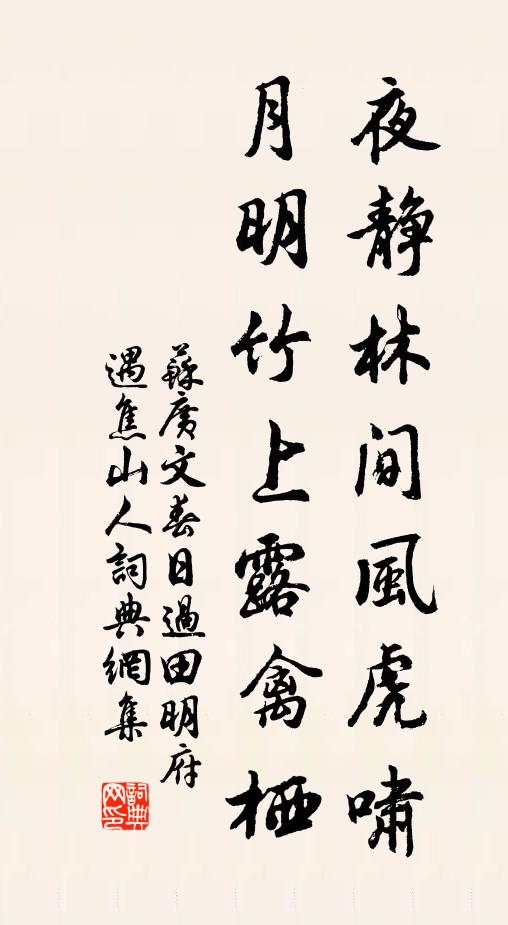 夜静林間風虎嘯
月明竹上露禽栖
蘇廣文春日過田明府
遇焦山人詞典網集
詞典
网印